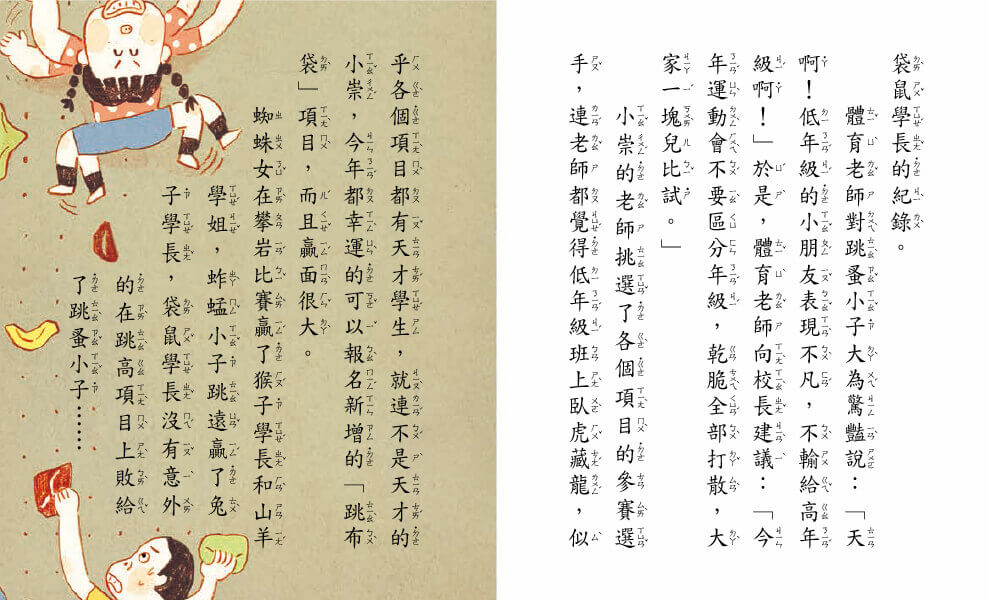 袋鼠學長的紀錄。
體育老師對跳蚤小子大為驚豔說：「天
啊！低年級的小朋友表現不凡，不輸給高年
級啊！」於是，體育老師向校長建議：「今
年運動會不要區分年級，乾脆全部打散，大
家一塊兒比試。」
小崇的老師挑選了各個項目的參賽選
手，連老師都覺得低年級班上臥虎藏龍，似
乎各個項目都有天才學生，就連不是天才的
小崇，今年都幸運的可以報名新增的「跳布
袋」項目，而且贏面很大。
蜘蛛女在攀岩比賽贏了猴子學長和山羊
學姐，蚱蜢小子跳遠贏了兔
子學長，袋鼠學長沒有意外
的在跳高項目上敗給
了跳蚤小子……